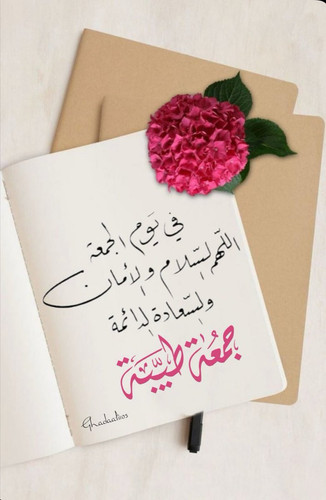 في يوم الجمعة
اللهم السلام والأمان
والسعادة الدائمة
جمعة طيبة